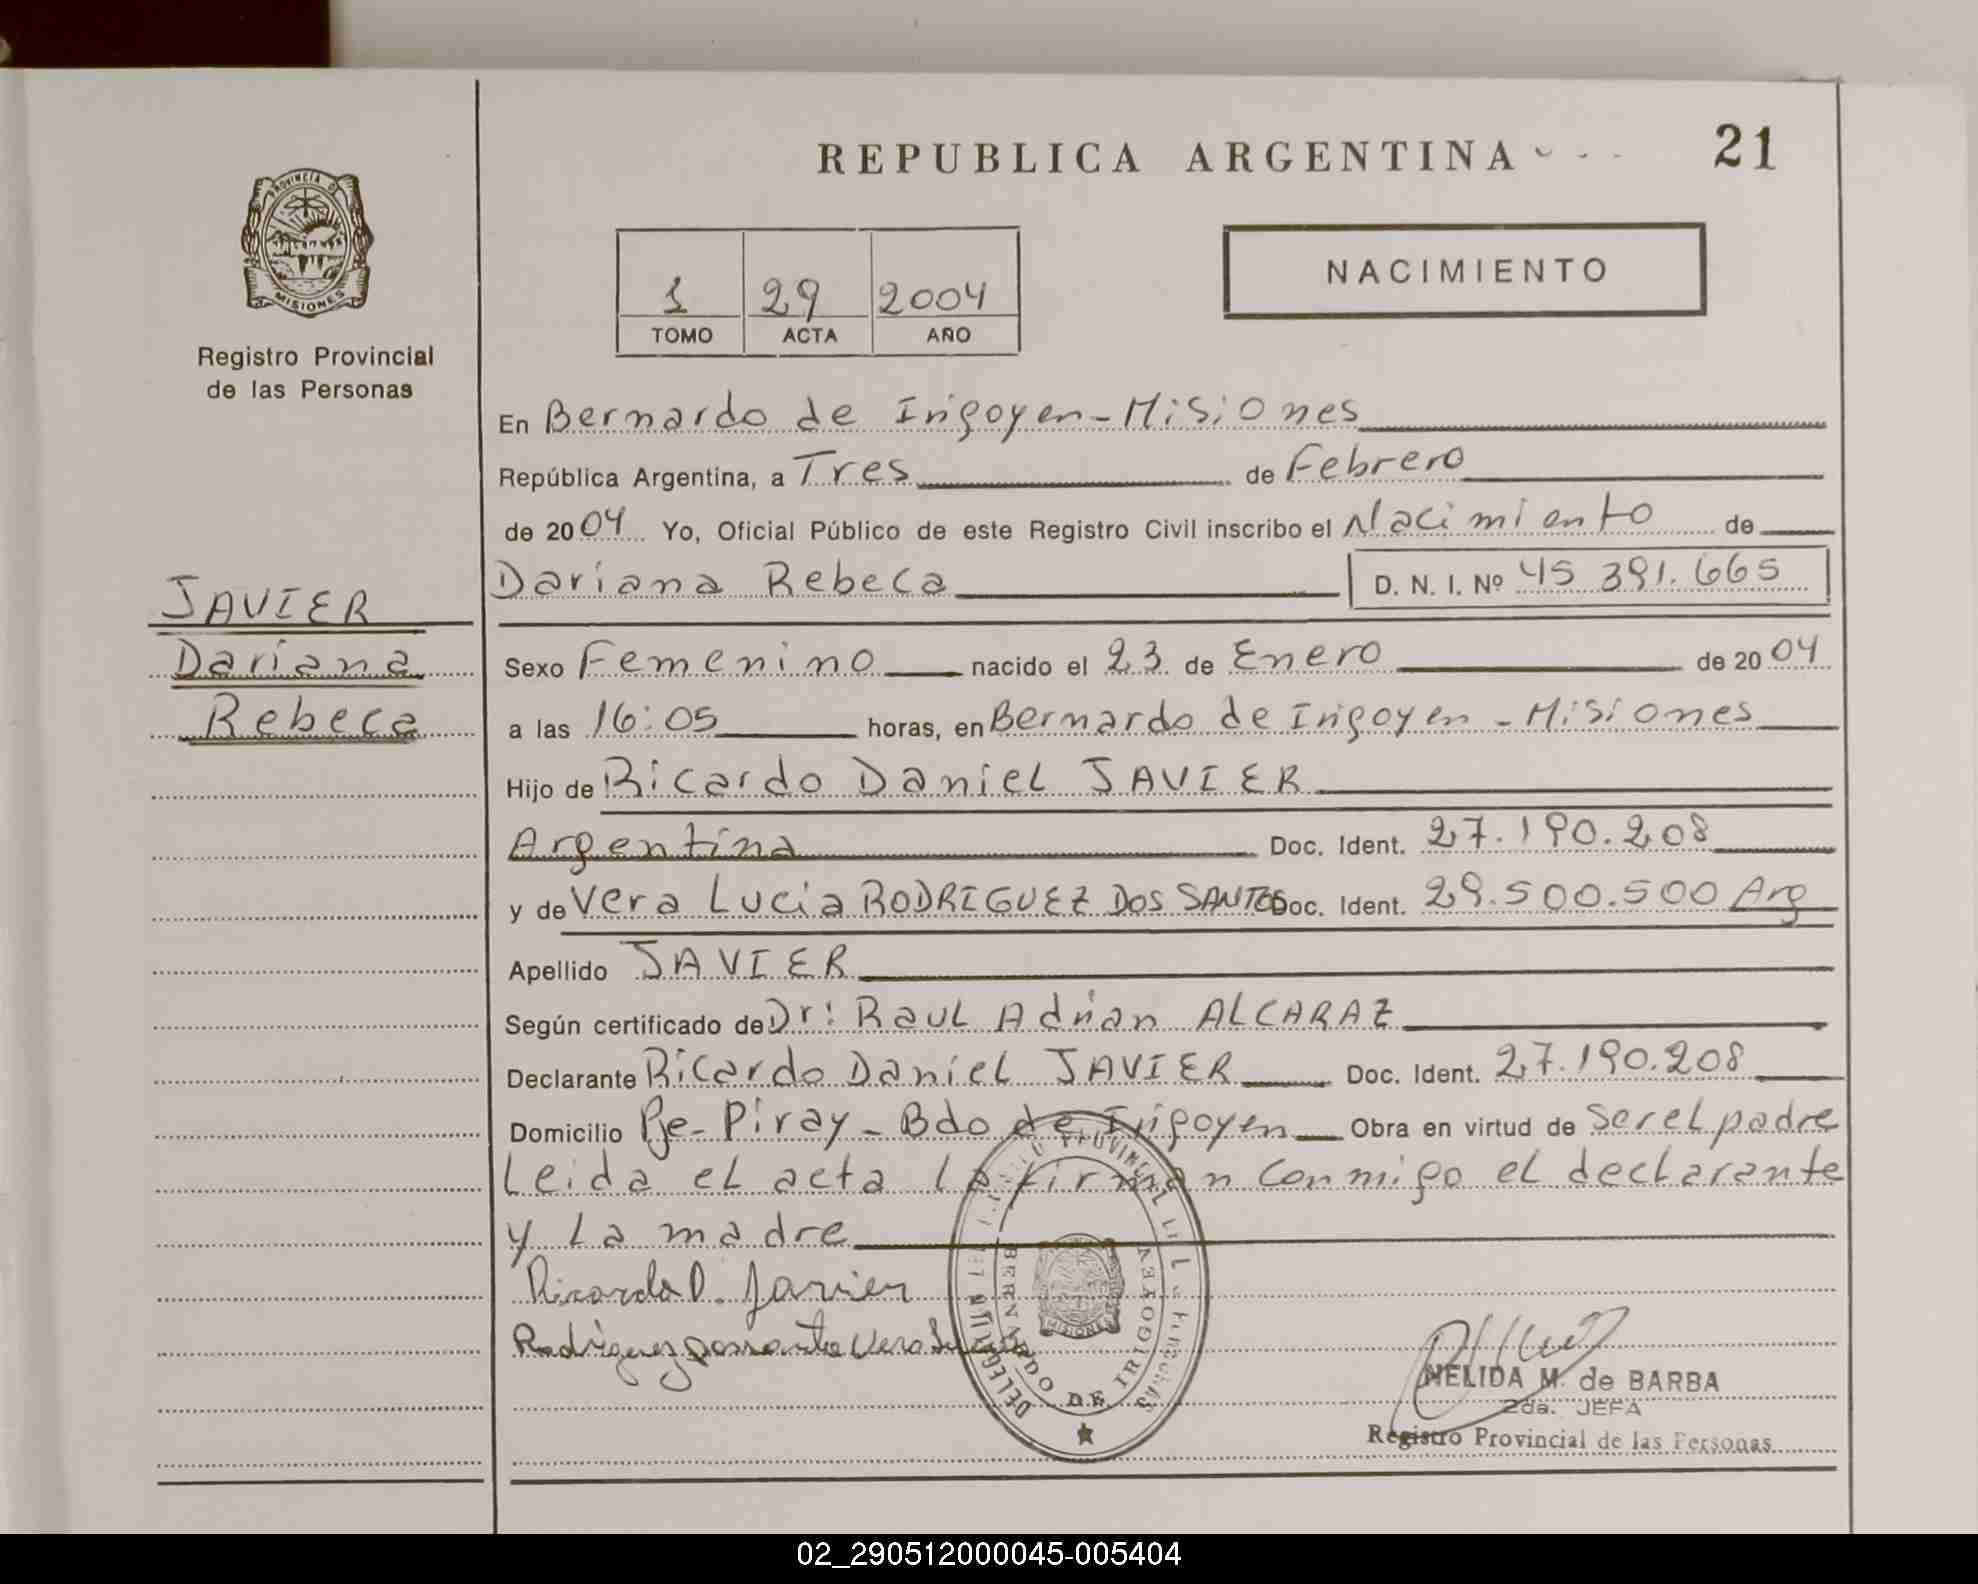 REPUBLICA ARGENTINA
21
PROVINCIA DE
MISIONES
Registro Provincial
de las Personas
1 29 2004
TOMO ACTA AÑO
NACIMIENTO
En Bernardo de Irigoyen - Misiones
República Argentina, a Tres de Febrero
de 2004 Yo, Oficial Público de este Registro Civil inscribo el Nacimiento de
Dariana Rebeca D. N. I. Nº 45 391.665
JAVIER
Dariana
Rebeca
Sexo Femenino nacido el 23 de Enero de 2004
a las 16:05 horas, en Bernardo de Irigoyen - Misiones
Hijo de Ricardo Daniel JAVIER
Argentina Doc. Ident. 27.190.208
y de Vera Lucia RODRIGUEZ DOS SANTOS Doc. Ident. 29.500.500 Arg
Apellido JAVIER
Según certificado de Dr: Raul Adrian ALCARAZ
Declarante Ricardo Daniel JAVIER Doc. Ident. 27.190.208
Domicilio Pje- Piray - Bdo de Irigoyen Obra en virtud de Ser el padre
Leida el acta la firman conmigo el declarante
y la madre
Ricardo D. Javier
Rodriguez dos santos Vera Lucia
BERNARDO DE IRIGOYEN
MISIONES
NELIDA M. de BARBA
2da. JEFA
Registro Provincial de las Personas
02_290512000045-005404